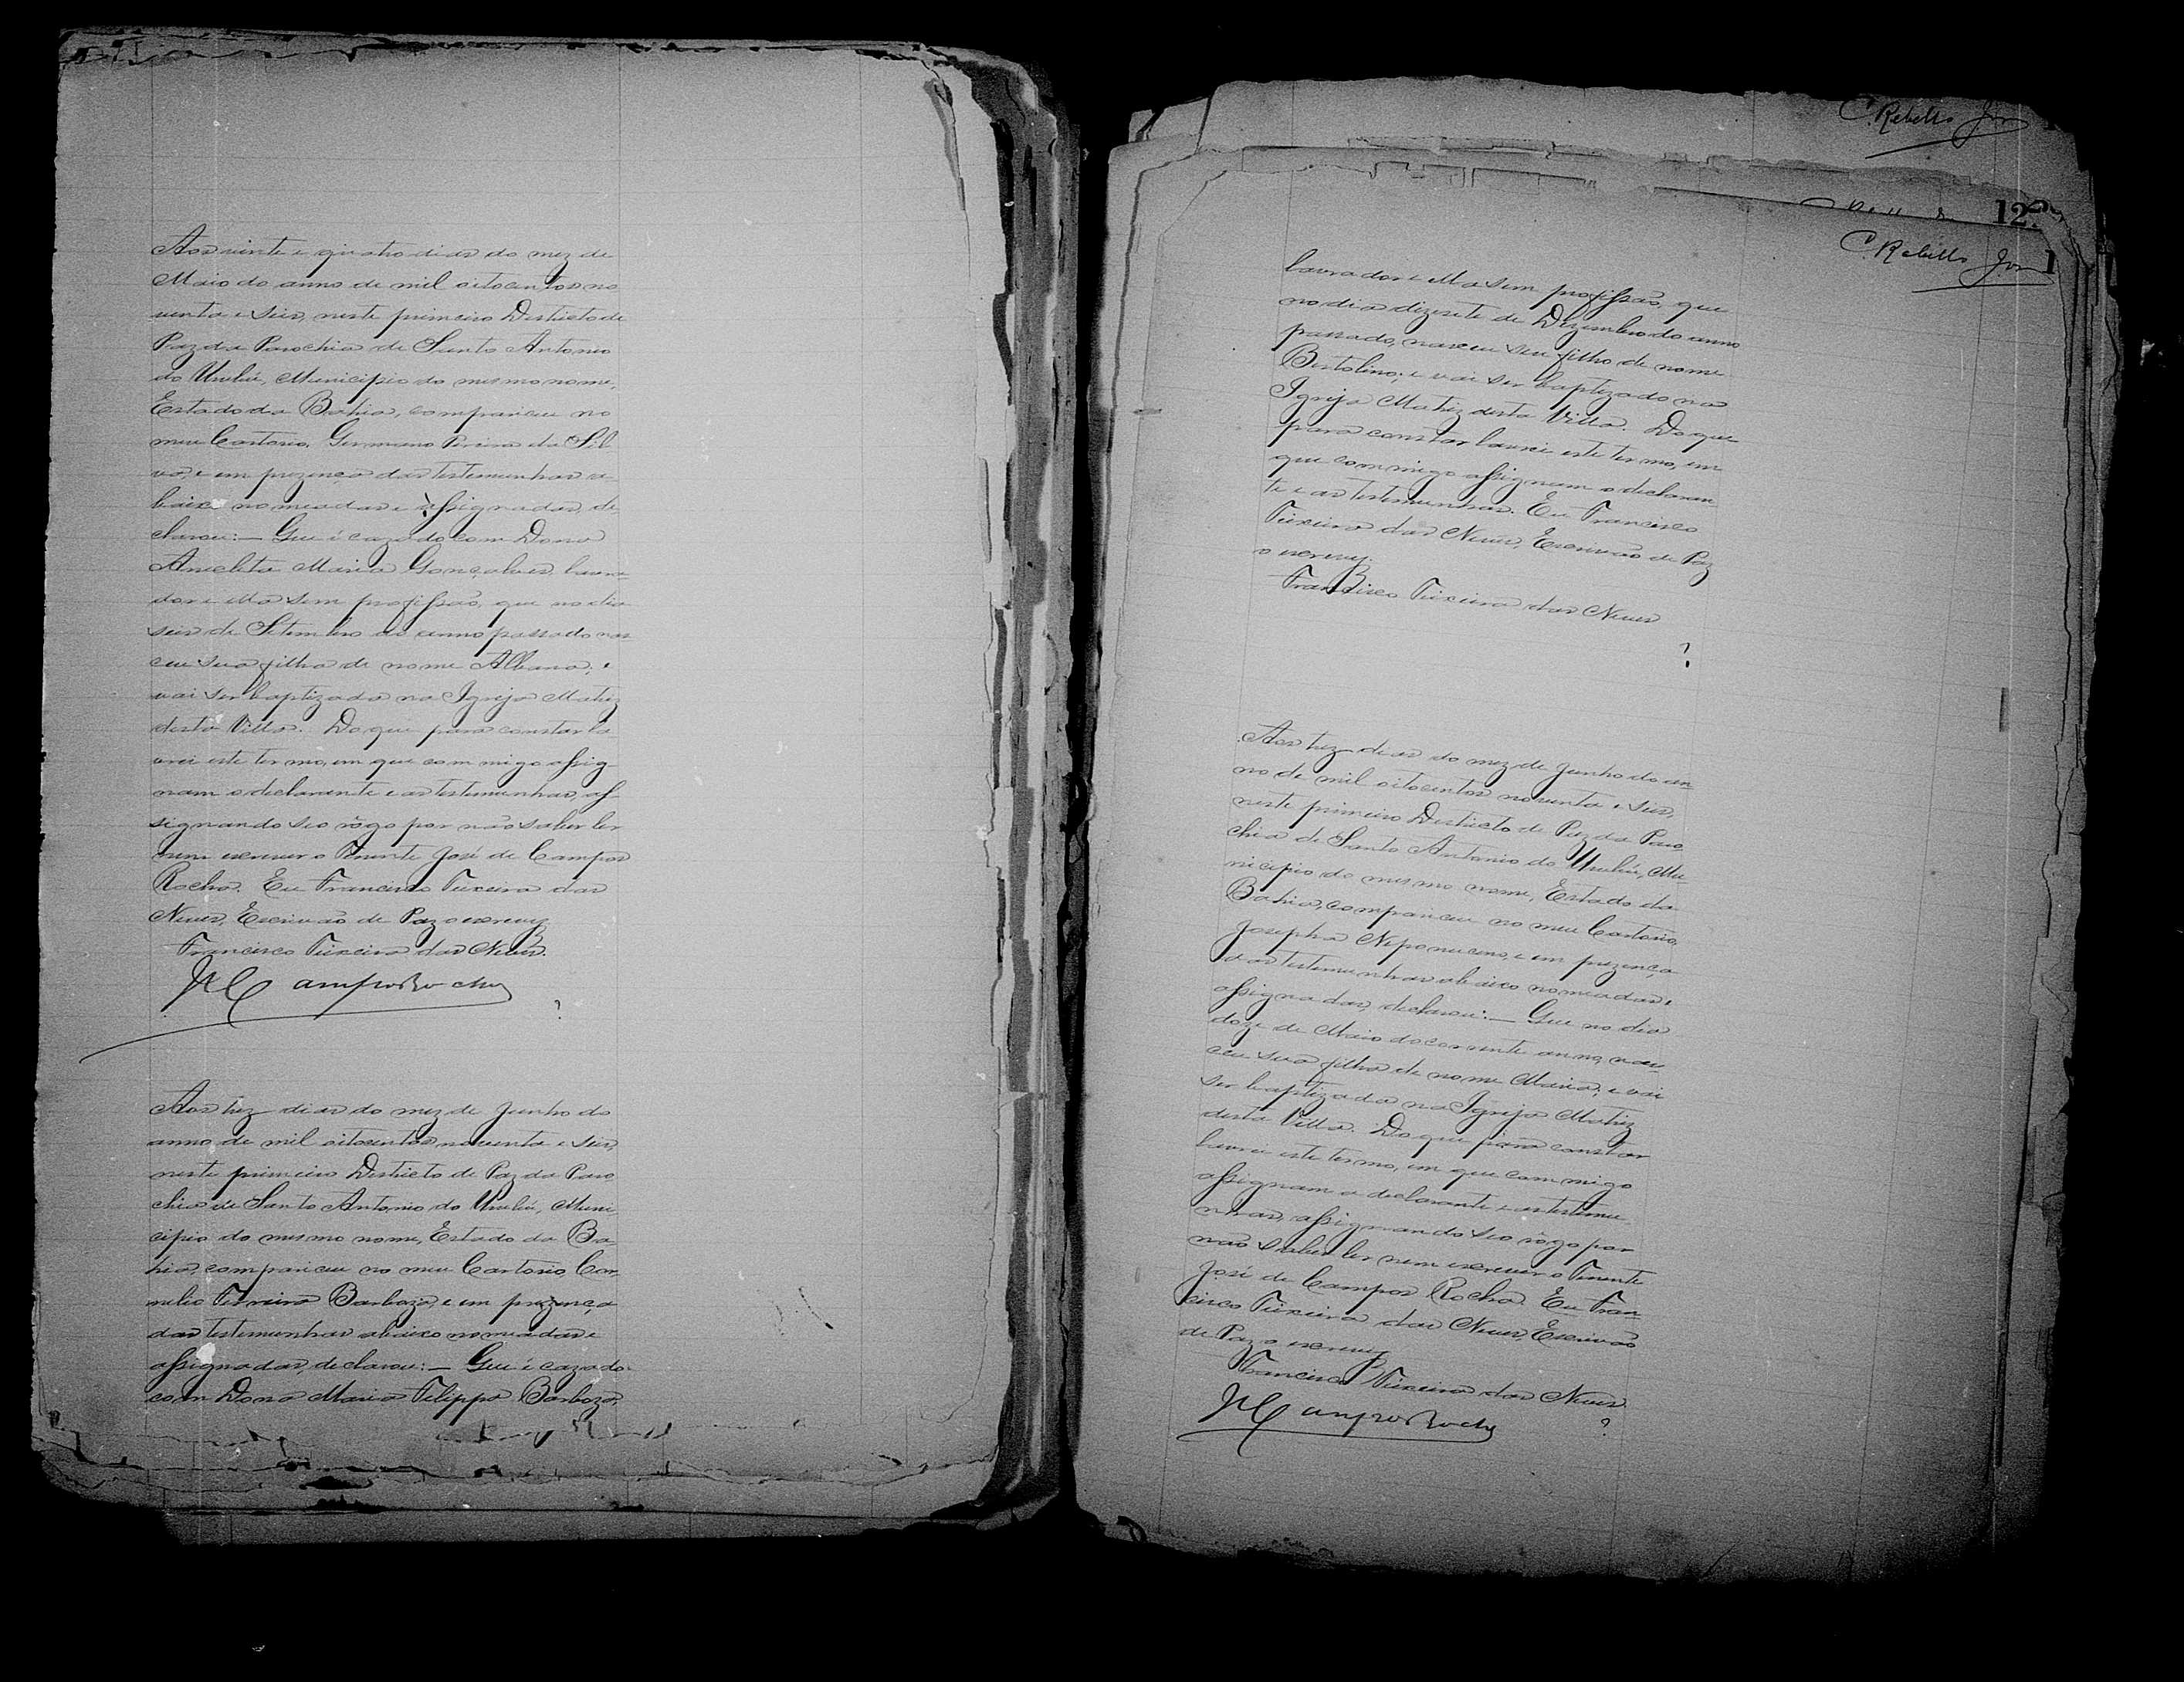 Aos vinte e quatro dias do mez de
Maio do anno de mil oitocentos no
venta e seis, neste primeiro Districto de
Paz da Parochia de Santo Antonio
do Urubú, Municipio do mesmo nome,
Estado da Bahia, compareceu no
meu Cartorio, Germano Pereira da Sil
va, e em prezença das testemunhas a-
baixo nomeadas e assignadas, de
clarou:— Que é cazado com Dona
Anelita Maria Gonçalves, lavra-
dor e ella sem profissão, que no dia
seis de Setembro do anno passado nas
ceu sua filha de nome Albana; e
vai ser baptizada na Igreja Matriz
desta Villa. Do que para constar la
vrei este termo, em que commigo assig
nam o declarante e as testemunhas, as-
signando seo rôgo por não saber ler
nem escrever o Tenente José de Campos
Rocha. Eu Francisco Teixeira das
Neves, Escrivão de Paz o escrevy
Francisco Teixeira das Neves.
JCamposRocha
?
Aos trez dias do mez de Junho do
anno de mil oitocentos noventa e seis,
neste primeiro Districto de Paz da Paro
chia de Santo Antonio do Urubú, Muni
cipio do mesmo nome, Estado da Ba-
hia, compareceu no meu Cartorio, Cor-
nelio Ferreira Barboza, e em prezença
das testemunhas abaixo nomeadas e
assignadas, declarou:— Que é cazado
com Dona Maria Filippa Barboza,
C. Rebello Jor
12
C. Rebello Jor 1
lavrador e ella sem profissão, que
no dia dizesete de Dizembro do anno
passado, nasceu seu filho de nome
Bertolino; e vai ser baptizado na
Igreja Matriz desta Villa. Do que
para constar lavrei este termo, em
que commigo assignam o declaran
te e as testemunhas. Eu Francisco
Teixeira das Neves, Escrivão de Paz
o escrevy.
Francisco Teixeira das Neves
?
Aos trez dias do mez de Junho do an
no de mil oitocentos noventa e seis,
neste primeiro Districto de Paz da Paro
chia de Santo Antonio do Urubú, Mu-
nicipio do mesmo nome, Estado da
Bahia, compareceu no meu Cartorio,
Josepha Nepomuceno, e em prezença
das testemunhas abaixo nomeadas e
assignadas, declarou:— Que no dia
doze de Maio do corrente anno, nas-
ceu sua filha de nome Maria; e vai
ser baptizada na Igreja Matriz
desta Villa. Do que para constar
lavrei este termo, em que commigo
assignam a declarante e as testemu
nhas, assignando seo rôgo por
não saber ler nem escrever o Tenente
José de Campos Rocha. Eu Fran-
cisco Teixeira das Neves, Escrivão
de Paz o escrevy
Francisco Teixeira das Neves
JCamposRocha
?